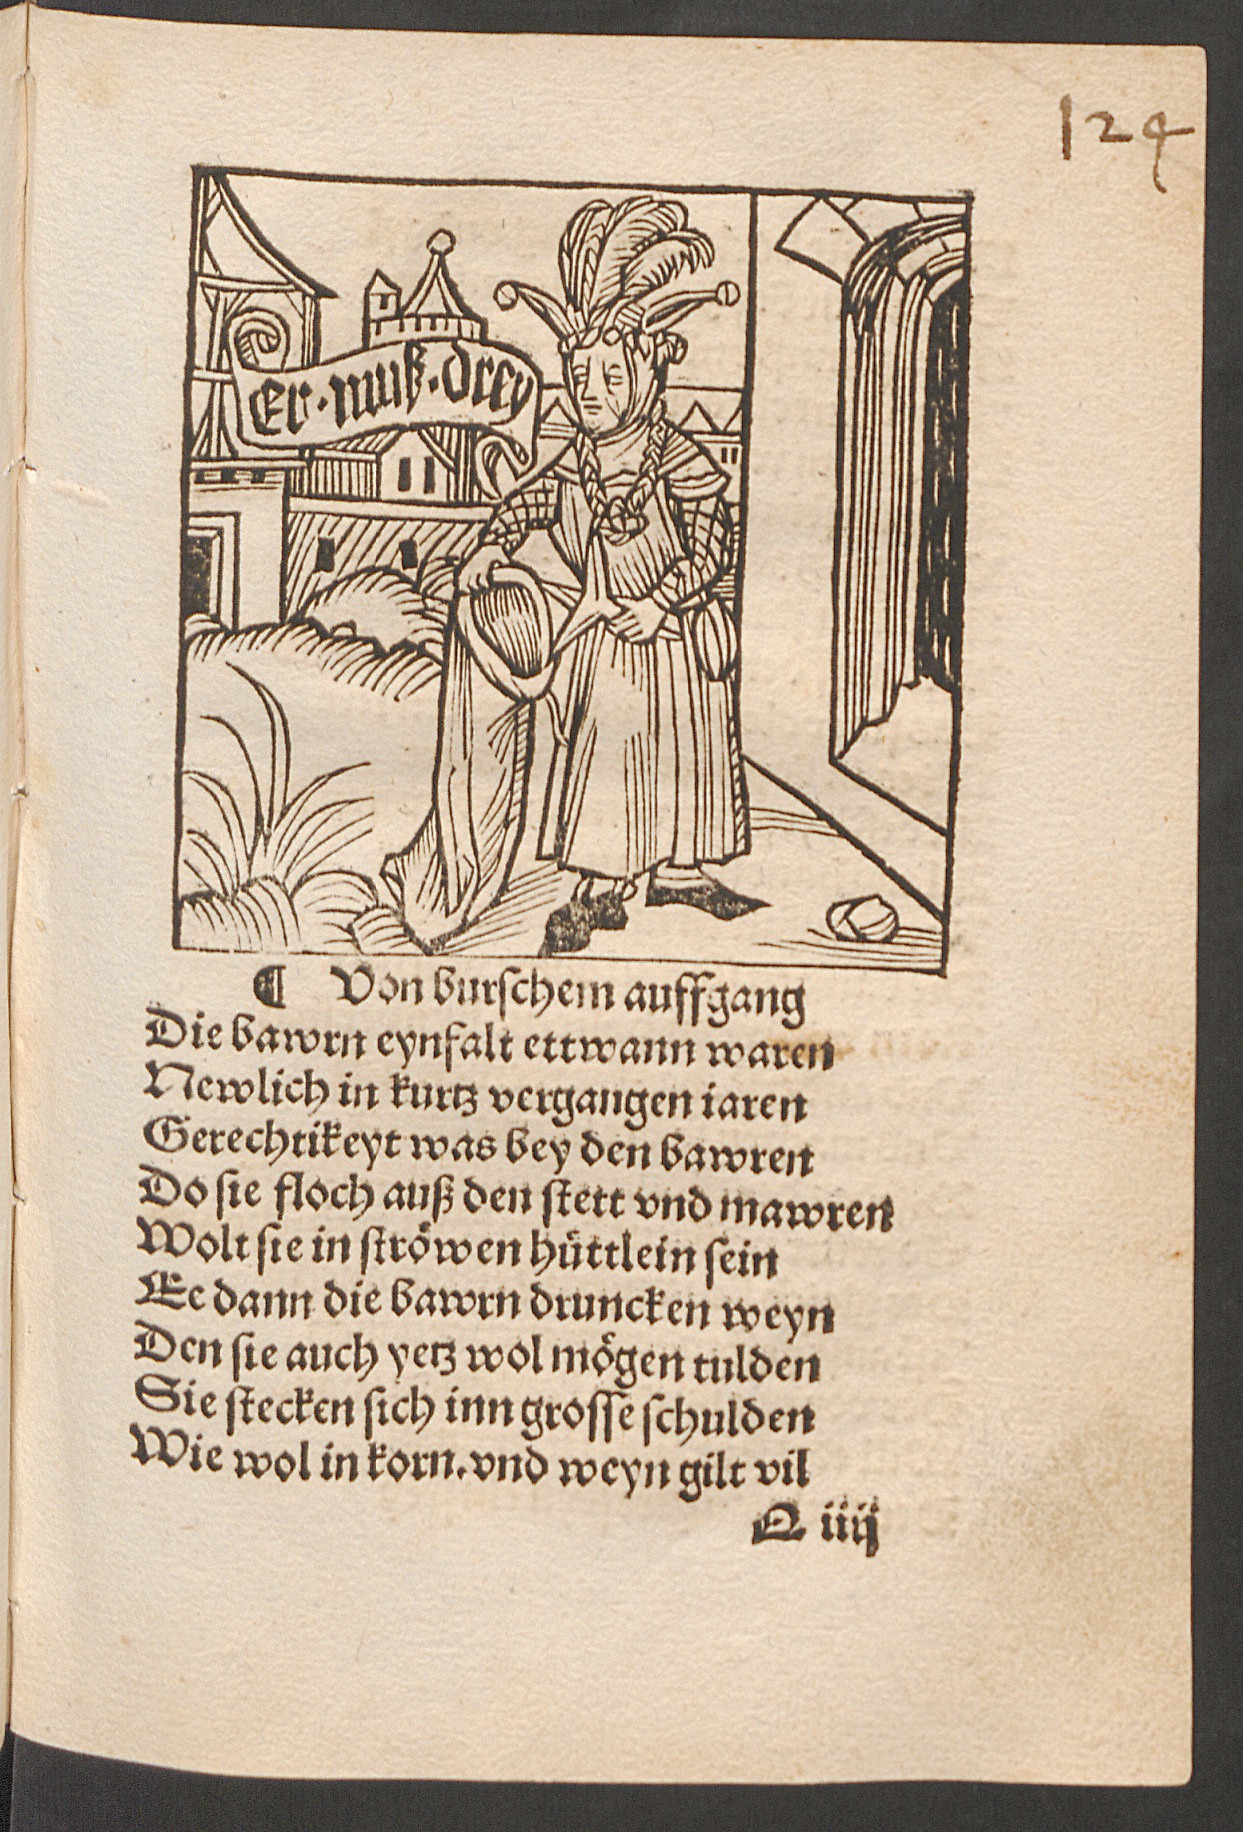 124
Er · muß · drey
¶ Von burschem auffgang
Die bawrn eynfalt ettwann waren
Newlich in kurtz vergangen iaren
Gerechtikeyt was bey den bawren
Do sie floch auß den stett vnd mawren
Wolt sie in ströwen hüttlein sein
Ee dann die bawrn druncken weyn
Den sie auch yetz wol mögen tulden
Sie stecken sich inn grosse schulden
Wie wol in korn. vnd weyn gilt vil
Q iiij